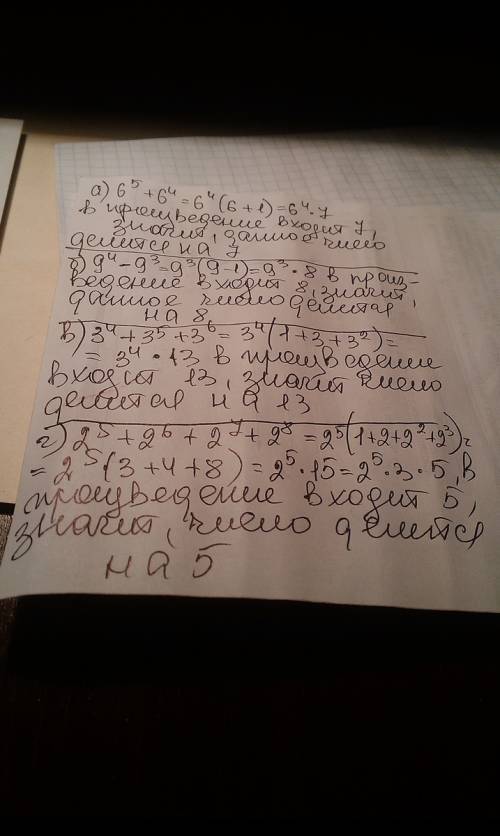 а) 6⁵ + 6⁴ = 6⁴(6+1) = 6⁴·7
в произведение входит 7,
значит, данное число
делится на 7
б) 9⁴ - 9³ = 9³(9-1) = 9³·8 в произ-
ведение входит 8, значит,
данное число делится
на 8
в) 3⁴ + 3⁵ + 3⁶ = 3⁴(1+3+3²) =
= 3⁴·13 в произведение
входит 13, значит число
делится на 13
г) 2⁵ + 2⁶ + 2⁷ + 2⁸ = 2⁵(1+2+2²+2³) =
= 2⁵(3+4+8) = 2⁵·15 = 2⁵·3·5, в
произведение входит 5,
значит, число делится
на 5